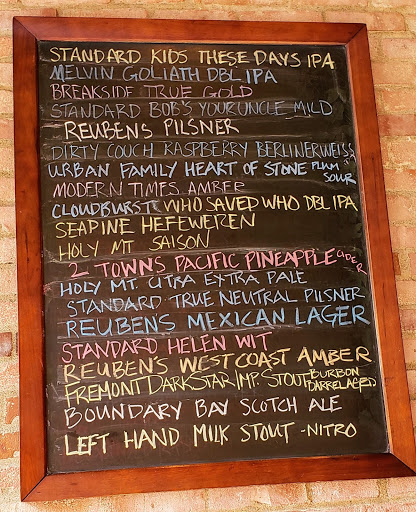 STANDARD KIDS THESE DAYS IPA
MELVIN GOLIATH DBL IPA
BREAKSIDE TRUE GOLD
STANDARD BOB'S YOUR UNCLE MILD
REUBENS PILSNER
DIRTY COUCH RASPBERRY BERLINERWEISSA
URBAN FAMILY HEART OF STONE PLUM SOUR
MODERN TIMES AMBER
CLOUDBURST WHO SAVED WHO DBL IPA
SEAPINE HEFEWEREN
HOLY MT. SAISON
2 TOWNS PACIFIC PINEAPPLE CIDER
HOLY MT. CITRA EXTRA PALE
STANDARD TRUE NEUTRAL PILSNER
REUBEN'S MEXICAN LAGER
STANDARD HELEN WIT
REUBEN'S WEST COAST AMBER
FREMONT DARK STAR IMP. STOUT BURBON BARREL AGED
BOUNDARY BAY SCOTCH ALE
LEFT HAND MILK STOUT - NITRO